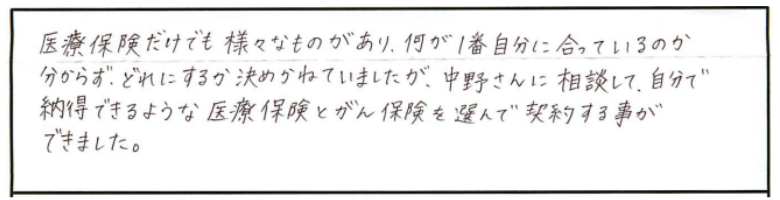 医療保険だけでも様々なものがあり、何が1番自分に合っているのか
分からず、どれにするか決めかねていましたが、中野さんに相談して、自分で
納得できるような医療保険とがん保険を選んで契約する事が
できました。